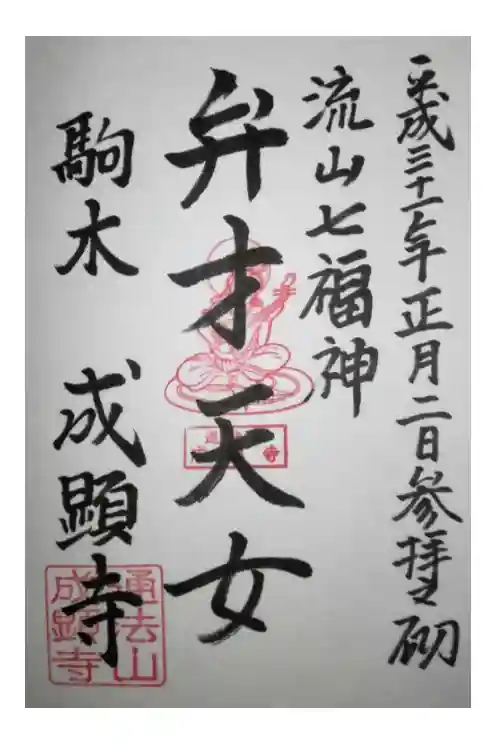 平成三十一年正月二日参拝之砌
流山七福神
弁才天女
駒木 成顕寺
通法山
成顕寺